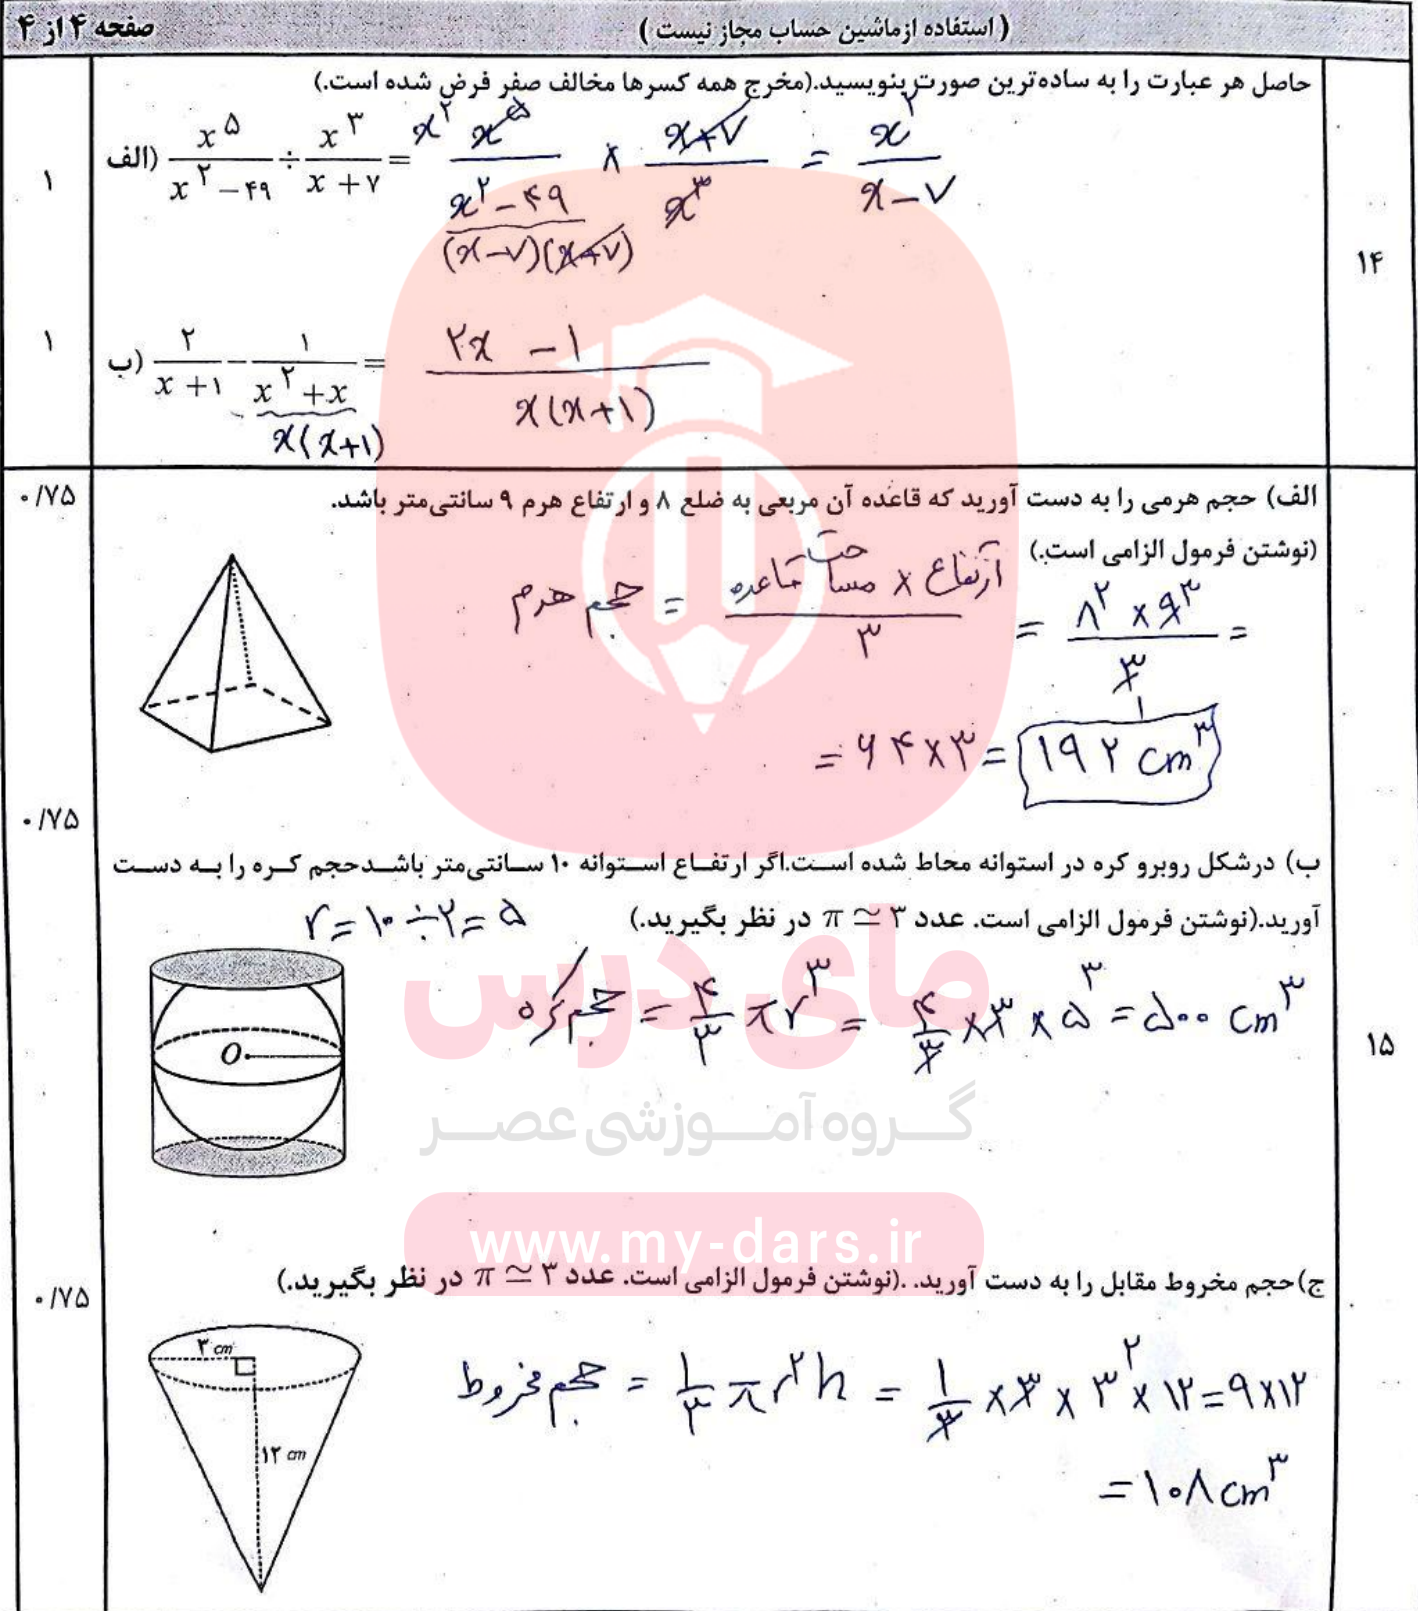 ( استفاده ازماشین حساب مجاز نیست )
صفحه ۴ از ۴
۱۴
حاصل هر عبارت را به ساده‌ترین صورت بنویسید.(مخرج همه کسرها مخالف صفر فرض شده است.)
الف) x^۵/(x^۲ - ۴۹) ÷ x^۳/(x + ۷) = x^۲ x^۵/(x^۲ - ۴۹) × (x+۷)/x^۳ = x^۲/(x-۷)
(x-۷)(x+۷)
۱
ب) ۲/(x + ۱) - ۱/(x^۲ + x) = (۲x - ۱)/(x(x+۱))
x(x+۱)
۱
۱۵
الف) حجم هرمی را به دست آورید که قاعده آن مربعی به ضلع ۸ و ارتفاع هرم ۹ سانتی‌متر باشد.
۰/۷۵
(نوشتن فرمول الزامی است.)
حجم هرم = (مساحت قاعده × ارتفاع)/۳ = (۸^۲ × ۹^۳)/۳ =
۱
= ۶۴×۳ = ۱۹۲ cm^۳
۰/۷۵
ب) درشکل روبرو کره در استوانه محاط شده است.اگر ارتفاع استوانه ۱۰ سانتی‌متر باشدحجم کره را به دست
آورید.(نوشتن فرمول الزامی است. عدد π ≃ ۳ در نظر بگیرید.)
r = ۱۰ ÷ ۲ = ۵
حجم کره = ۴/۳ π r^۳ = ۴/۳ × ۳ × ۵^۳ = ۵۰۰ cm^۳
O
مای درس
گروه آموزشی عصر
www.my-dars.ir
ج)حجم مخروط مقابل را به دست آورید. .(نوشتن فرمول الزامی است. عدد π ≃ ۳ در نظر بگیرید.)
۰/۷۵
۳ cm
۱۲ cm
حجم مخروط = ۱/۳ π r^۲ h = ۱/۳ × ۳ × ۳^۲ × ۱۲ = ۹×۱۲
= ۱۰۸ cm^۳